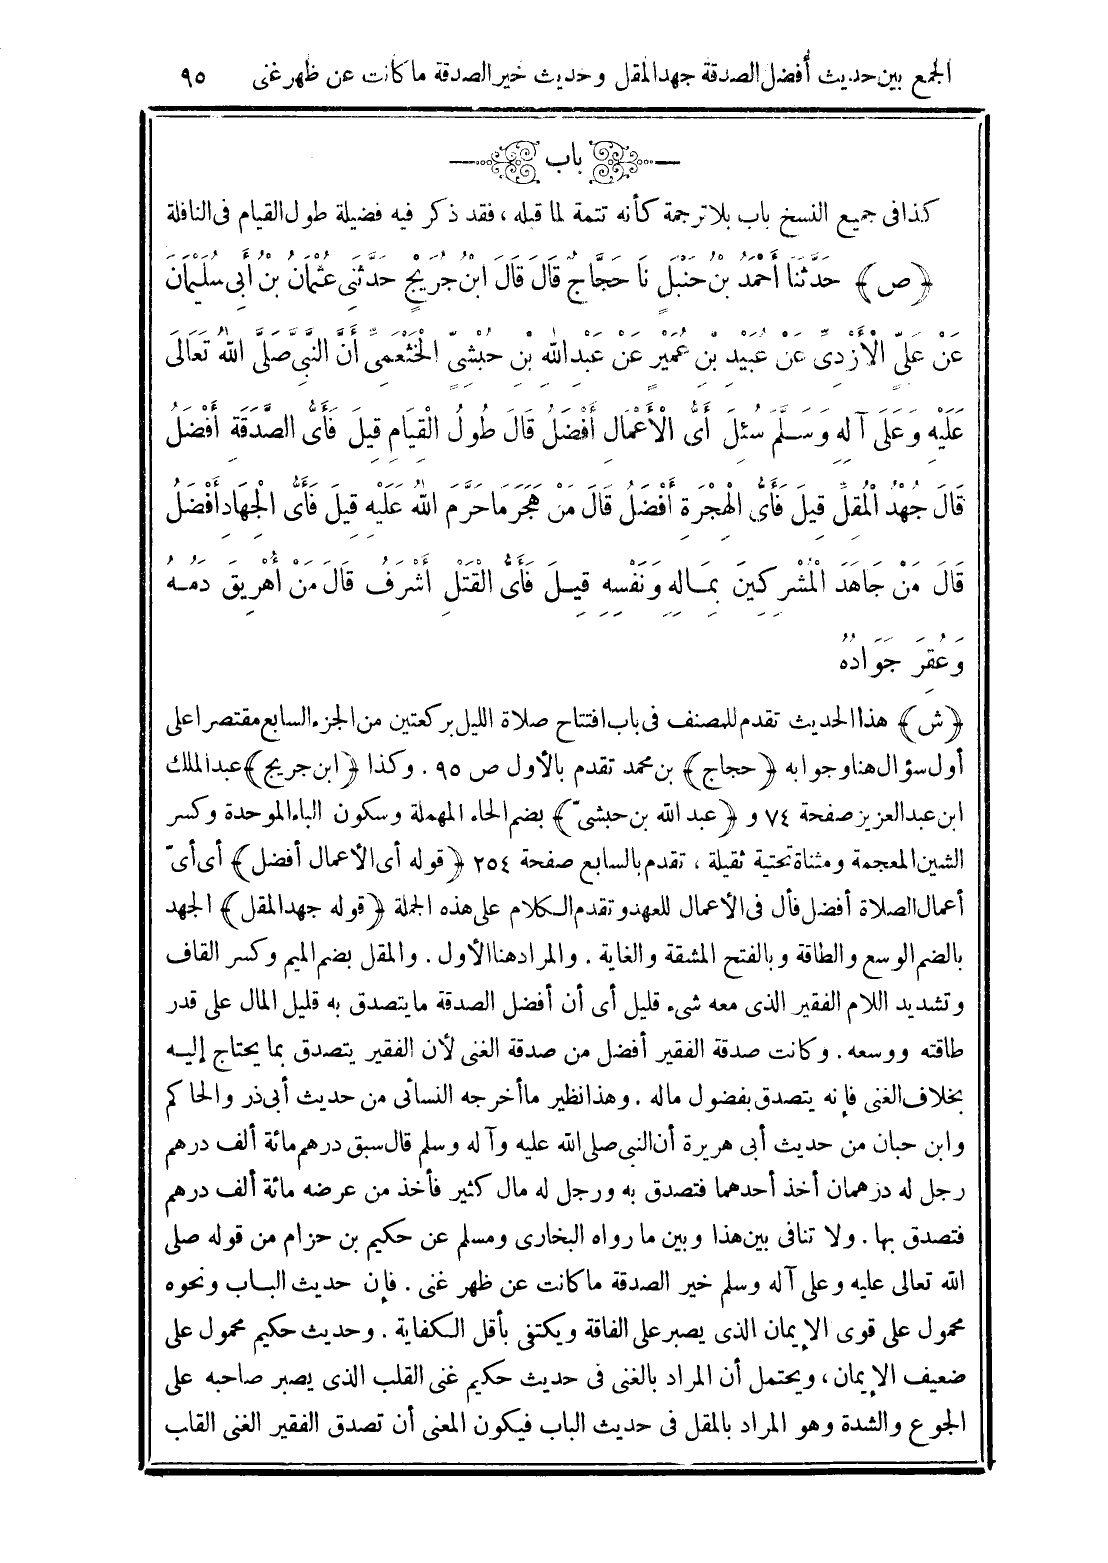 الجمع بين حديث أفضل الصدقة جهد المقل وحديث خير الصدقة ما كانت عن ظهر غنى ٩٥
باب
كذا فى جميع النسخ باب بلا ترجمة كأنه تتمة لما قبله ، فقد ذكر فيه فضيلة طول القيام فى النافلة
﴿ص﴾ حَدَّثَنَا أَحْمَدُ بْنُ حَنْبَلٍ نَا حَجَّاجٌ قَالَ قَالَ ابْنُ جُرَيْجٍ حَدَّثَنِى عُثْمَانُ بْنُ أَبِى سُلَيْمَانَ
عَنْ عَلِىٍّ الْأَزْدِىِّ عَنْ عُبَيْدِ بْنِ عُمَيْرٍ عَنْ عَبْدِ اللهِ بْنِ حُبْشِىٍّ الْخَثْعَمِىِّ أَنَّ النَّبِىَّ صَلَّى اللهُ تَعَالَى
عَلَيْهِ وَعَلَى آلِهِ وَسَلَّمَ سُئِلَ أَىُّ الْأَعْمَالِ أَفْضَلُ قَالَ طُولُ الْقِيَامِ قِيلَ فَأَىُّ الصَّدَقَةِ أَفْضَلُ
قَالَ جُهْدُ الْمُقِلِّ قِيلَ فَأَىُّ الْهِجْرَةِ أَفْضَلُ قَالَ مَنْ هَجَرَ مَا حَرَّمَ اللهُ عَلَيْهِ قِيلَ فَأَىُّ الْجِهَادِ أَفْضَلُ
قَالَ مَنْ جَاهَدَ الْمُشْرِكِينَ بِمَالِهِ وَنَفْسِهِ قِيلَ فَأَىُّ الْقَتْلِ أَشْرَفُ قَالَ مَنْ أُهْرِيقَ دَمُهُ
وَعُقِرَ جَوَادُهُ
﴿ش﴾ هذا الحديث تقدم للمصنف فى باب افتتاح صلاة الليل بركعتين من الجزء السابع مقتصرا على
أول سؤال هنا وجوابه ﴿حجاج﴾ بن محمد تقدم بالأول ص ٩٥ . وكذا ﴿ابن جريج﴾ عبد الملك
ابن عبد العزيز صفحة ٧٤ و ﴿عبد الله بن حبشىّ﴾ بضم الحاء المهملة وسكون الباء الموحدة وكسر
الشين المعجمة ومثناة تحتية ثقيلة ، تقدم بالسابع صفحة ٢٥٤ ﴿قوله أى الأعمال أفضل﴾ أى أىّ
أعمال الصلاة أفضل فأل فى الأعمال للعهد وتقدم الكلام على هذه الجملة ﴿قوله جهد المقل﴾ الجهد
بالضم الوسع والطاقة وبالفتح المشقة والغاية . والمراد هنا الأول . والمقل بضم الميم وكسر القاف
وتشديد اللام الفقير الذى معه شىء قليل أى أن أفضل الصدقة ما يتصدق به قليل المال على قدر
طاقته ووسعه . وكانت صدقة الفقير أفضل من صدقة الغنى لأن الفقير يتصدق بما يحتاج إليه
بخلاف الغنى فإنه يتصدق بفضول ماله . وهذا نظير ما أخرجه النسائى من حديث أبى ذر والحاكم
وابن حبان من حديث أبى هريرة أن النبى صلى الله عليه وآله وسلم قال سبق درهم مائة ألف درهم
رجل له درهمان أخذ أحدهما فتصدق به ورجل له مال كثير فأخذ من عرضه مائة ألف درهم
فتصدق بها . ولا تنافى بين هذا وبين ما رواه البخارى ومسلم عن حكيم بن حزام من قوله صلى
الله تعالى عليه وعلى آله وسلم خير الصدقة ما كانت عن ظهر غنى . فإن حديث الباب ونحوه
محمول على قوى الإيمان الذى يصبر على الفاقة ويكتفى بأقل الكفاية . وحديث حكيم محمول على
ضعيف الإيمان ، ويحتمل أن المراد بالغنى فى حديث حكيم غنى القلب الذى يصبر صاحبه على
الجوع والشدة وهو المراد بالمقل فى حديث الباب فيكون المعنى أن تصدق الفقير الغنى القلب